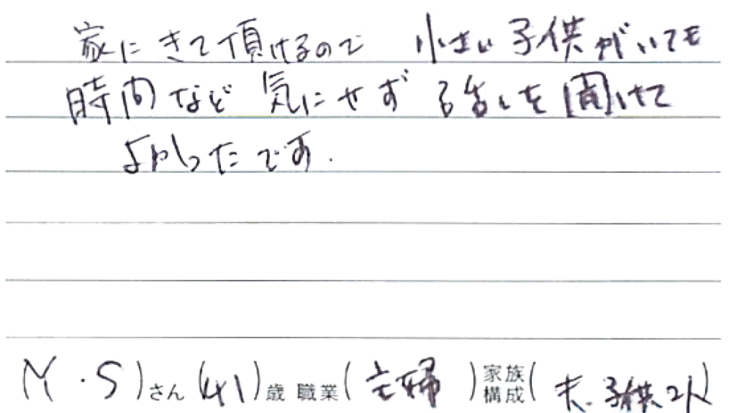 家にきて頂けるので 小さい子供がいても
時間など気にせず 話しを聞けて
よかったです.
Y・S)さん(41)歳 職業(主婦)家族構成(夫、子供2人)